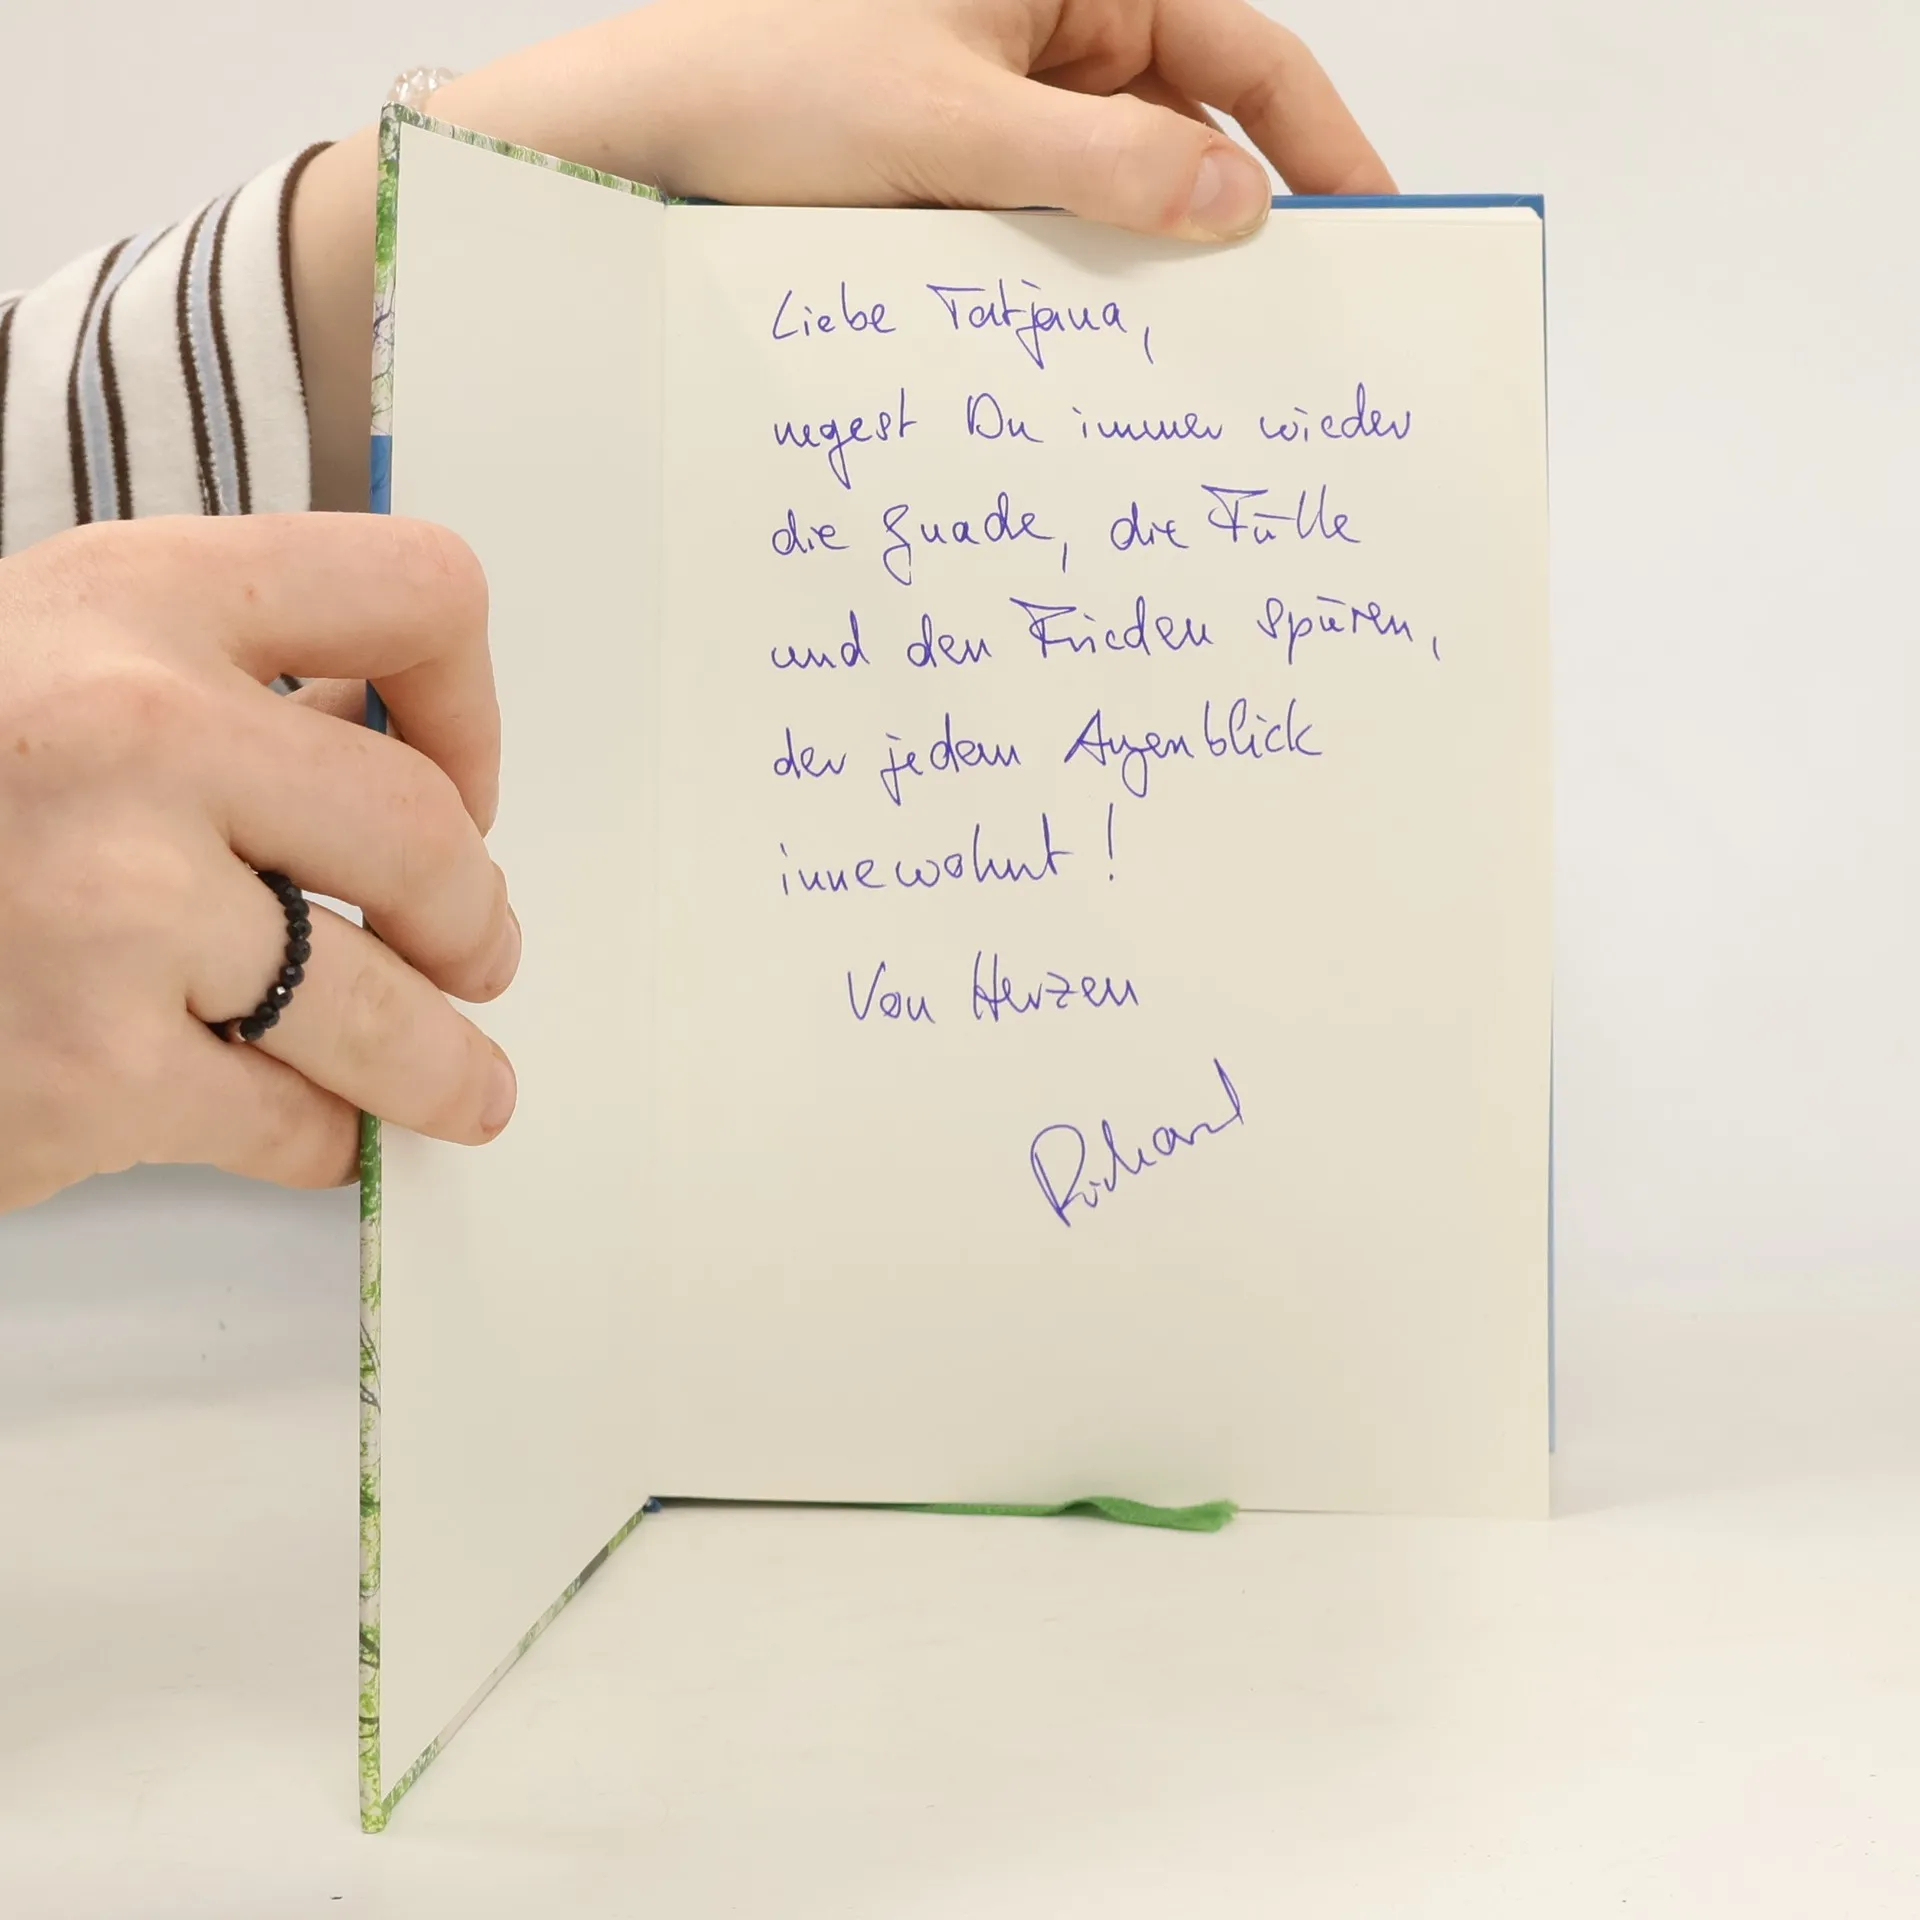 Liebe Tatjana,
mögest Du immer wieder
die Gnade, die Fülle
und den Frieden spüren,
der jedem Augenblick
innewohnt!
Von Herzen
Richard